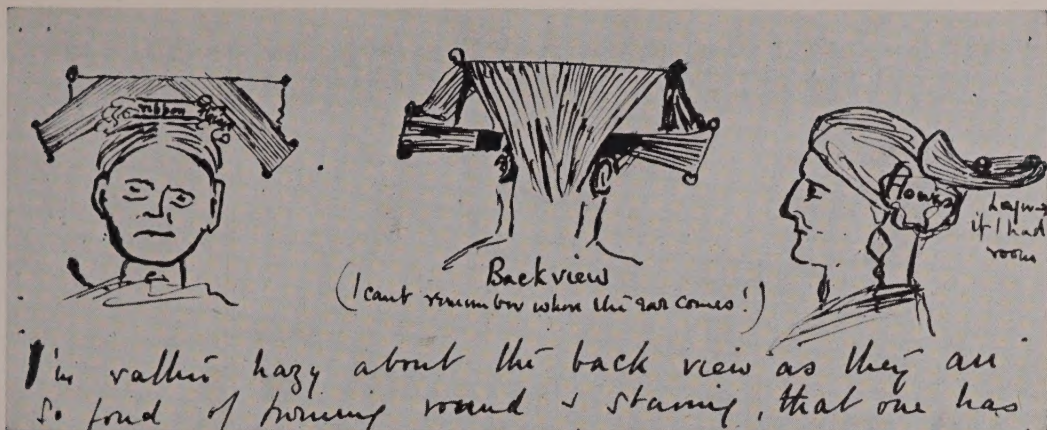 ribbon
flowers
Back view
(I can't remember where the ear comes!)
longer
if I had
room
I'm rather hazy about the back view as they are
so fond of turning round & staring, that one has